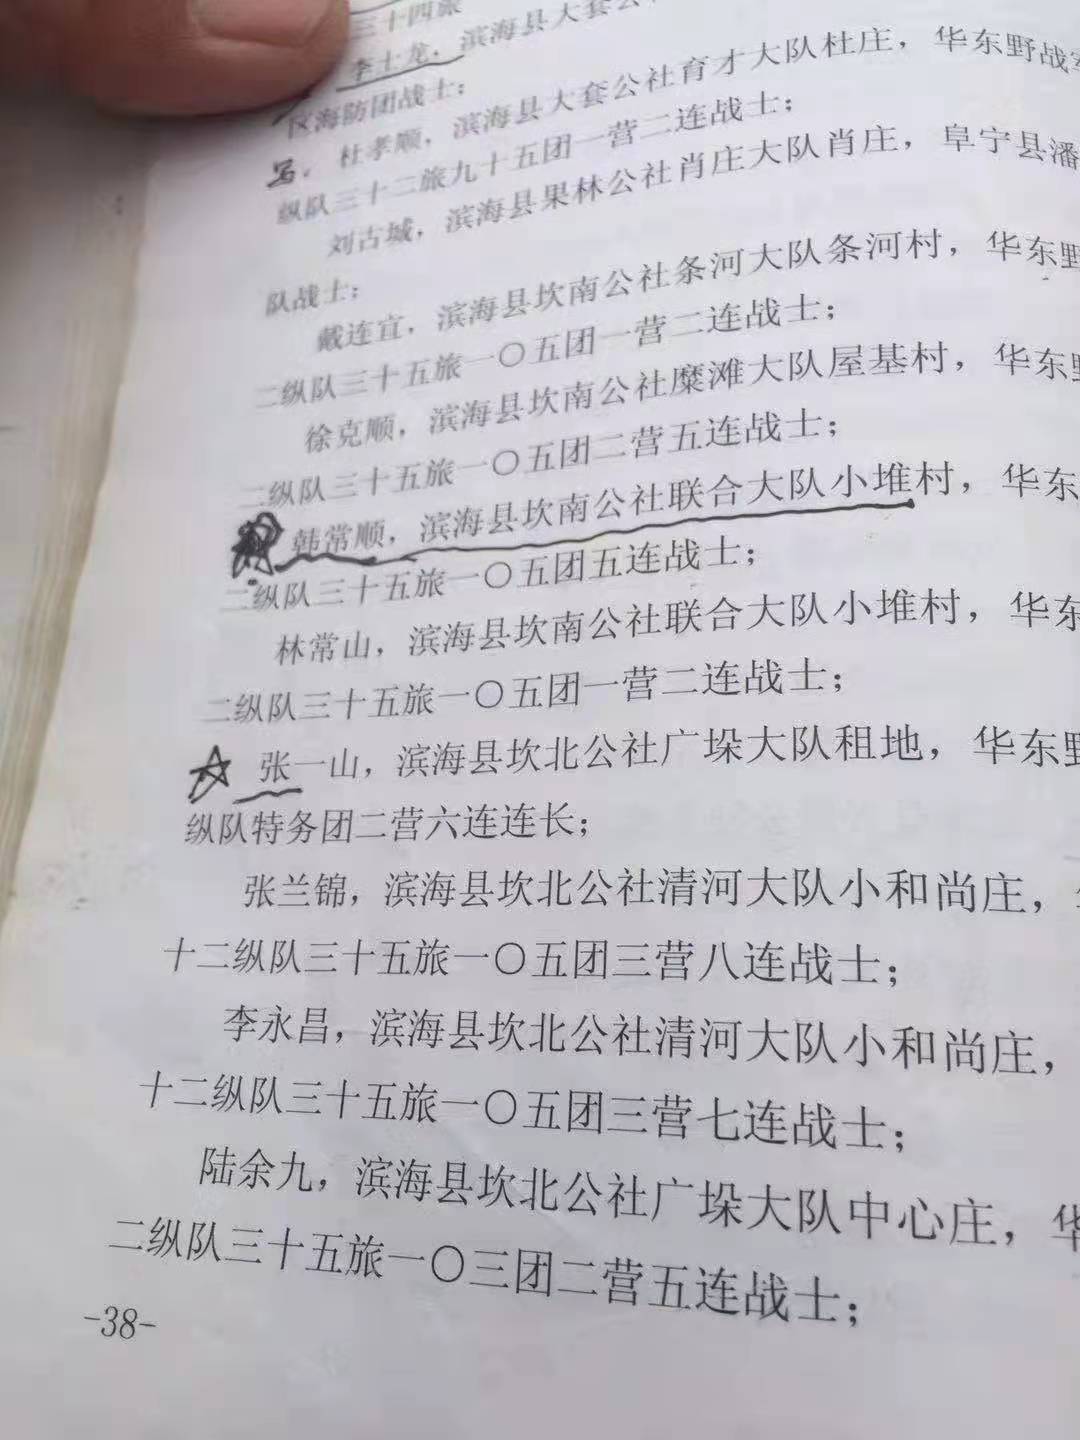 三十四旅
李士龙，滨海县大套公
区海防团战士；
写. 杜孝顺，滨海县大套公社育才大队杜庄，华东野战军
纵队三十二旅九十五团一营二连战士；
刘古城，滨海县果林公社肖庄大队肖庄，阜宁县潘
队战士；
戴连宜，滨海县坎南公社条河大队条河村，华东野
二纵队三十五旅一〇五团一营二连战士；
徐克顺，滨海县坎南公社糜滩大队屋基村，华东野
二纵队三十五旅一〇五团二营五连战士；
韩常顺，滨海县坎南公社联合大队小堆村，华东
二纵队三十五旅一〇五团五连战士；
林常山，滨海县坎南公社联合大队小堆村，华东
二纵队三十五旅一〇五团一营二连战士；
张一山，滨海县坎北公社广垛大队租地，华东野
纵队特务团二营六连连长；
张兰锦，滨海县坎北公社清河大队小和尚庄，
十二纵队三十五旅一〇五团三营八连战士；
李永昌，滨海县坎北公社清河大队小和尚庄，
十二纵队三十五旅一〇五团三营七连战士；
陆余九，滨海县坎北公社广垛大队中心庄，华
二纵队三十五旅一〇三团二营五连战士；
-38-